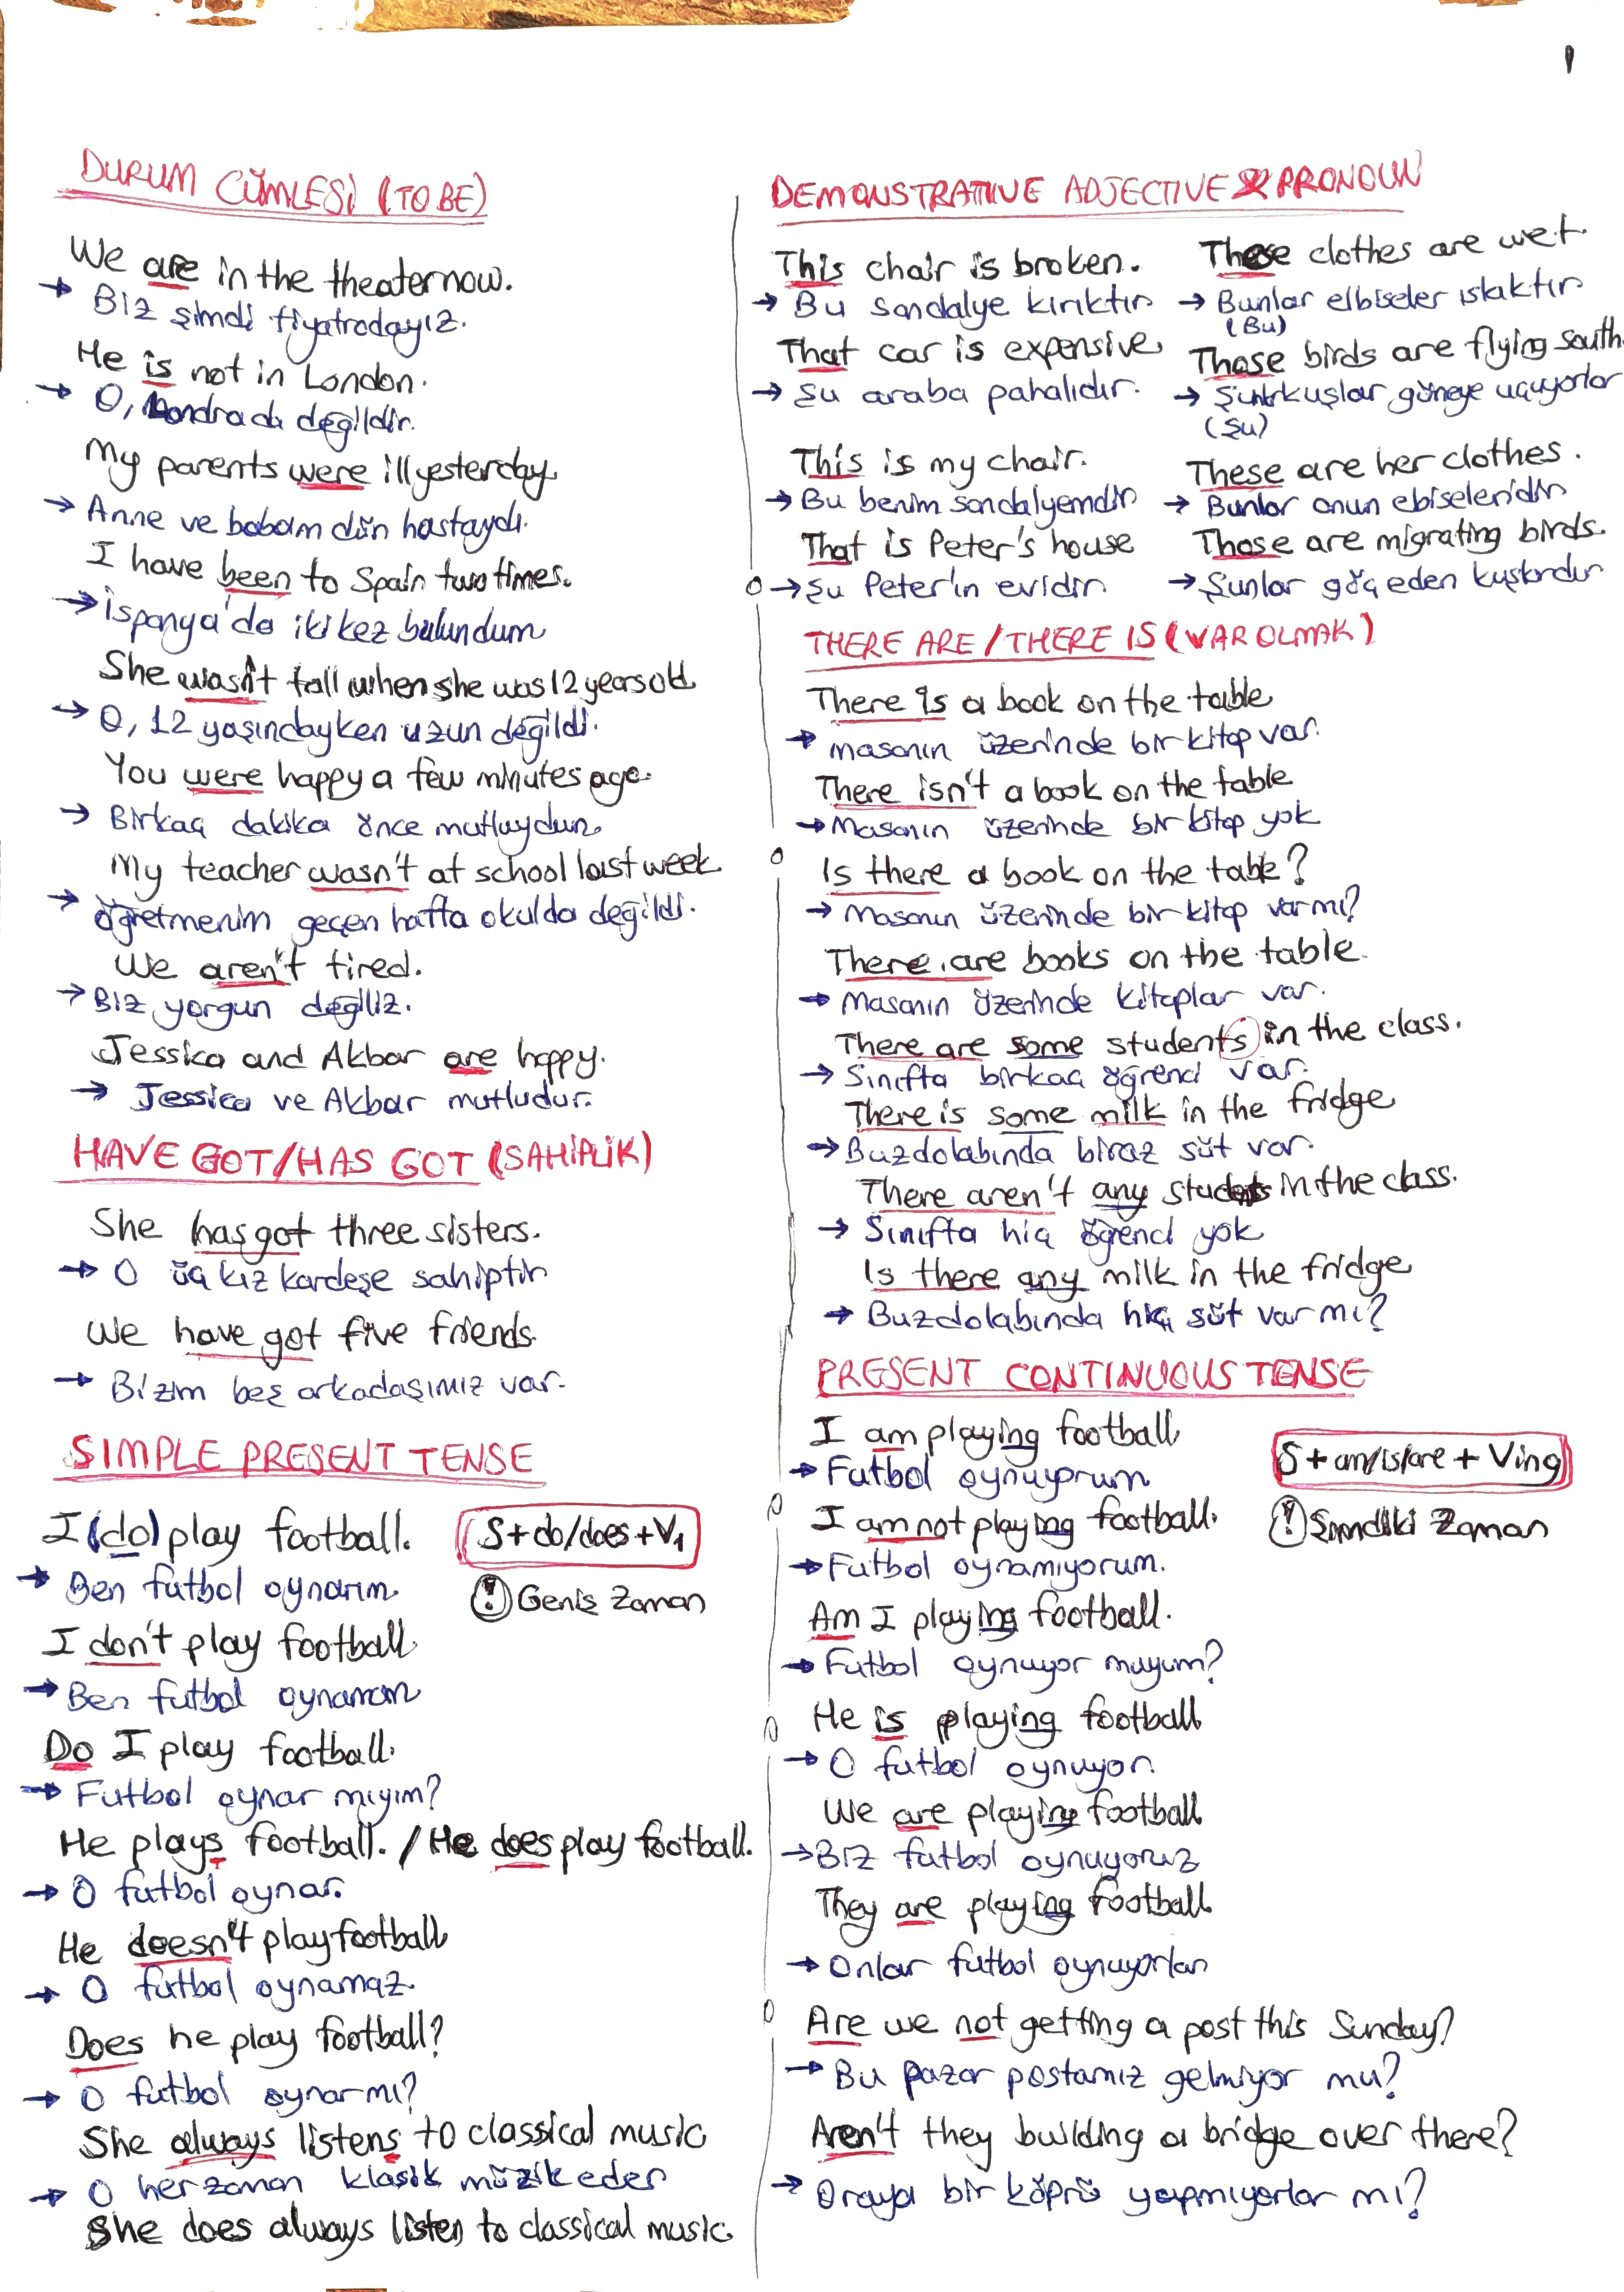 1
DURUM CÜMLESİ (TO BE)
We are in the theater now.
→ Biz şimdi tiyatrodayız.
He is not in London.
→ O, Londrada değildir.
My parents were ill yesterday
→ Anne ve babam dün hastaydı.
I have been to Spain two times.
→ İspanya'da iki kez bulundum
She wasn't tall when she was 12 years old
→ O, 12 yaşındayken uzun değildi.
You were happy a few minutes ago.
→ Birkaç dakika önce mutluydun
My teacher wasn't at school last week
→ öğretmenim geçen hafta okulda değildi.
We aren't tired.
→ Biz yorgun değiliz.
Jessica and Akbar are happy.
→ Jessica ve Akbar mutludur.
HAVE GOT/HAS GOT (SAHİPLİK)
She has got three sisters.
→ O üç kız kardeşe sahiptir
We have got five friends
→ Bizim beş arkadaşımız var.
SIMPLE PRESENT TENSE
I (do) play football.
S + do/does + V1
→ Ben futbol oynarım
! Geniş Zaman
I don't play football
→ Ben futbol oynamam
Do I play football.
→ Futbol oynar mıyım?
He plays football. / He does play football.
→ O futbol oynar.
He doesn't play football
→ O futbol oynamaz.
Does he play football?
→ O futbol oynar mı?
She always listens to classical music
→ O her zaman klasik müzik eder
She does always listen to classical music
DEMONSTRATIVE ADJECTIVE & PRONOUN
This chair is broken.
→ Bu sandalye kırıktır
That car is expensive
→ Şu araba pahalıdır.
This is my chair.
→ Bu benim sandalyemdir
That is Peter's house
→ Şu Peter'in evidir
These clothes are wet
→ Bunlar elbiseler ıslaktır
(Bu)
Those birds are flying south
→ kuşlar güneye uçuyorlar
(Şu)
These are her clothes.
→ Bunlar onun ebiseleridir
Those are migrating birds.
→ Şunlar göç eden kuşlardır
THERE ARE / THERE IS (VAR OLMAK)
There is a book on the table
→ masanın üzerinde bir kitap var.
There isn't a book on the table
→ Masanın üzerinde bir kitap yok
Is there a book on the table?
→ Masanın üzerinde bir kitap var mı?
There are books on the table.
→ Masanın üzerinde kitaplar var.
There are some students in the class.
→ Sınıfta birkaç öğrenci var.
There is some milk in the fridge
→ Buzdolabında biraz süt var.
There aren't any students in the class.
→ Sınıfta hiç öğrenci yok
Is there any milk in the fridge
→ Buzdolabında hiç süt var mı?
PRESENT CONTINUOUS TENSE
I am playing football
S + am/is/are + Ving
→ Futbol oynuyorum
! Şimdiki Zaman
I am not playing football.
→ Futbol oynamıyorum.
Am I playing football.
→ Futbol oynuyor muyum?
He is playing football
→ O futbol oynuyor.
We are playing football
→ Biz futbol oynuyoruz
They are playing football
→ Onlar futbol oynuyorlar
Are we not getting a post this Sunday?
→ Bu pazar postamız gelmiyor mu?
Aren't they building a bridge over there?
→ Oraya bir köprü yapmıyorlar mı?